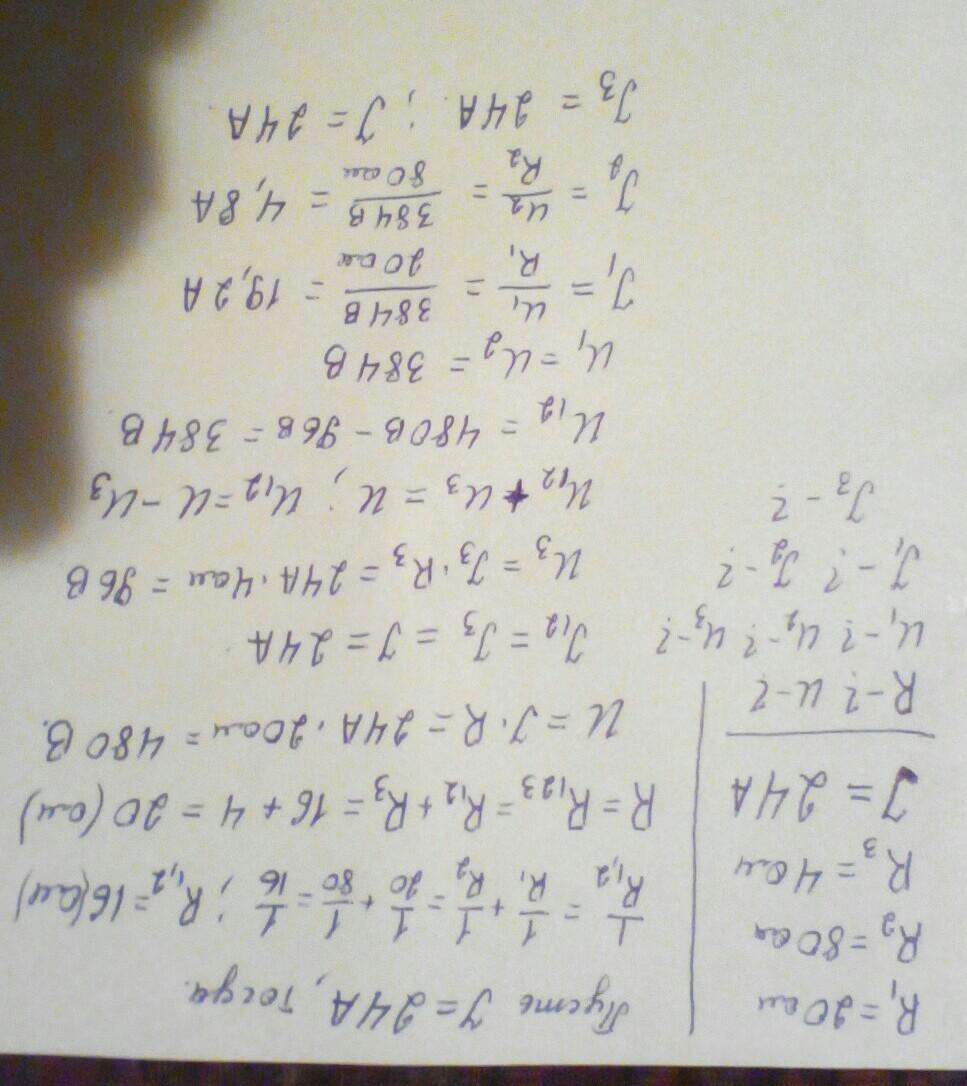 R₁ = 20 ом
R₂ = 80 ом
R₃ = 4 ом
J = 24 А
R - ? U - ?
U₁ - ? U₂ - ? U₃ - ?
J₁ - ? J₂ - ?
J₃ - ?
Пусть J = 24 А, тогда.
1/R₁,₂ = 1/R₁ + 1/R₂ = 1/20 + 1/80 = 1/16 ; R₁,₂ = 16 (ом)
R = R₁₂₃ = R₁₂ + R₃ = 16 + 4 = 20 (ом)
U = J · R = 24 А · 20 ом = 480 В.
J₁₂ = J₃ = J = 24 А
U₃ = J₃ · R₃ = 24 А · 4 ом = 96 В
U₁₂ + U₃ = U ; U₁₂ = U - U₃
U₁₂ = 480 В - 96 В = 384 В
U₁ = U₂ = 384 В
J₁ = U₁/R₁ = 384 В/20 ом = 19,2 А
J₂ = U₂/R₂ = 384 В/80 ом = 4,8 А
J₃ = 24 А ; J = 24 А